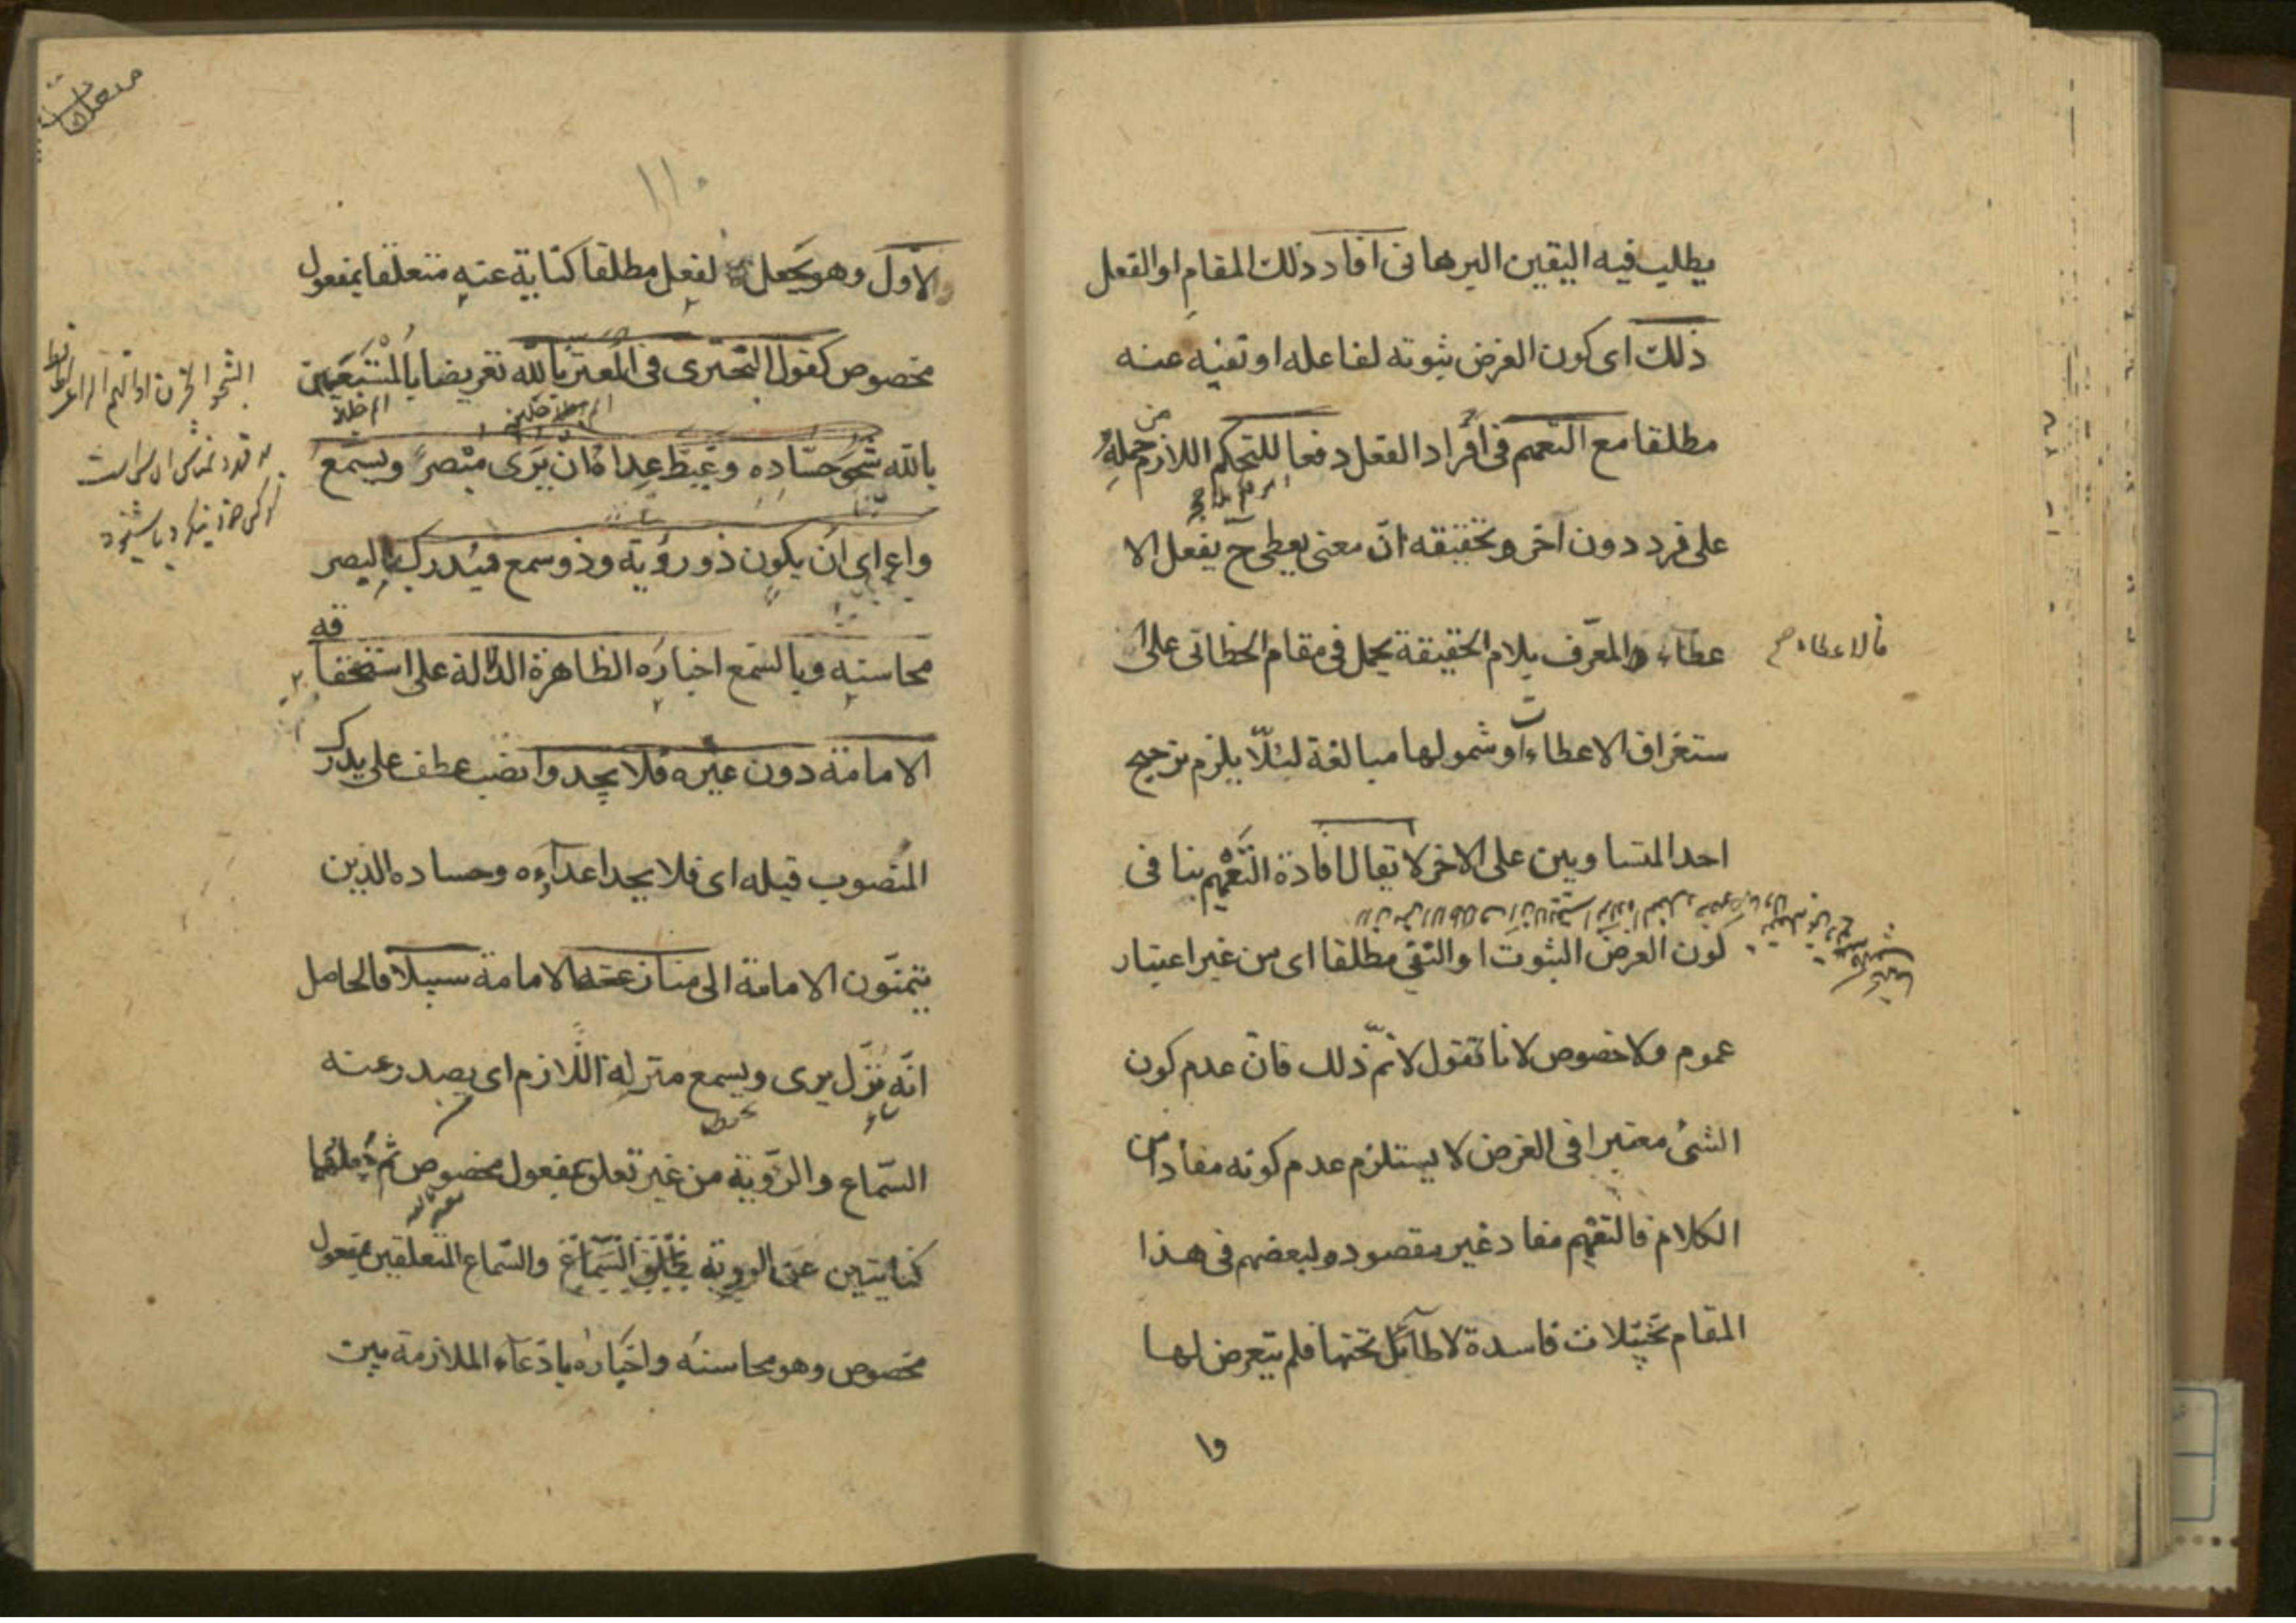 يطلب فيه اليقين البرهانى افاد ذلك المقام او الفعل
ذلك اى كون الغرض ثبوته لفاعله او نفيه عنه
مطلقا مع التعميم فى افراد الفعل دفعا للتحكم اللازم من حمله
على فرد دون آخر وتحقيقه ان معنى يعطى ح يفعل الا
عطاء فالاعطاء المعرّف بلام الحقيقة يحمل فى مقام الخطابى على ا
ستغراق الاعطاءات وشمولها مبالغة لئلّا يلزم ترجيح
احد المتساويين على الاخر لا يقال افادة التّعميم ينافى
كون الغرض الثبوت او النفى مطلقا اى من غير اعتبار
عموم ولا خصوص لانا نقول لا نمّ ذلك فانّ عدم كون
الشئ معتبرا فى الغرض لا يستلزم عدم كونه مفادا من
الكلام فالتعميم مفاد غير مقصود ولبعضهم فى هذا
المقام تخيّلات فاسدة لا طائل تحتها فلم يتعرض لها
وا
١١٠
والاوّل وهو يجعل لفعل مطلقا كناية عنه متعلقا بمفعول
مخصوص كقول البحترى فى المعتز بالله تعريضا بالمستعين
بالله شجو حسّاده وغيظ عداه ان يرى مبصر ويسمع
واع اى ان يكون ذو رؤية وذو سمع فيدرك بالبصر
محاسنه وبالسّمع اخباره الظاهرة الدّالة على استحقاقه
الامامة دون غيره فلا يجدوا نصب عطف على يدرك
المنصوب قبله اى فلا يجد اعداءه وحساده الذين
يتمنّون الامامة الى منازعته الامامة سبيلا فالحاصل
انّه نزّل يرى ويسمع منزلة اللّازم اى يصدر عنه
السّماع والرّوية من غير تعلق بمفعول مخصوص ثم جعلهما
كنايتين عن الروية والسّماع المتعلقين بمفعول
مخصوص وهو محاسنه واخباره بادّعاء الملازمة بين